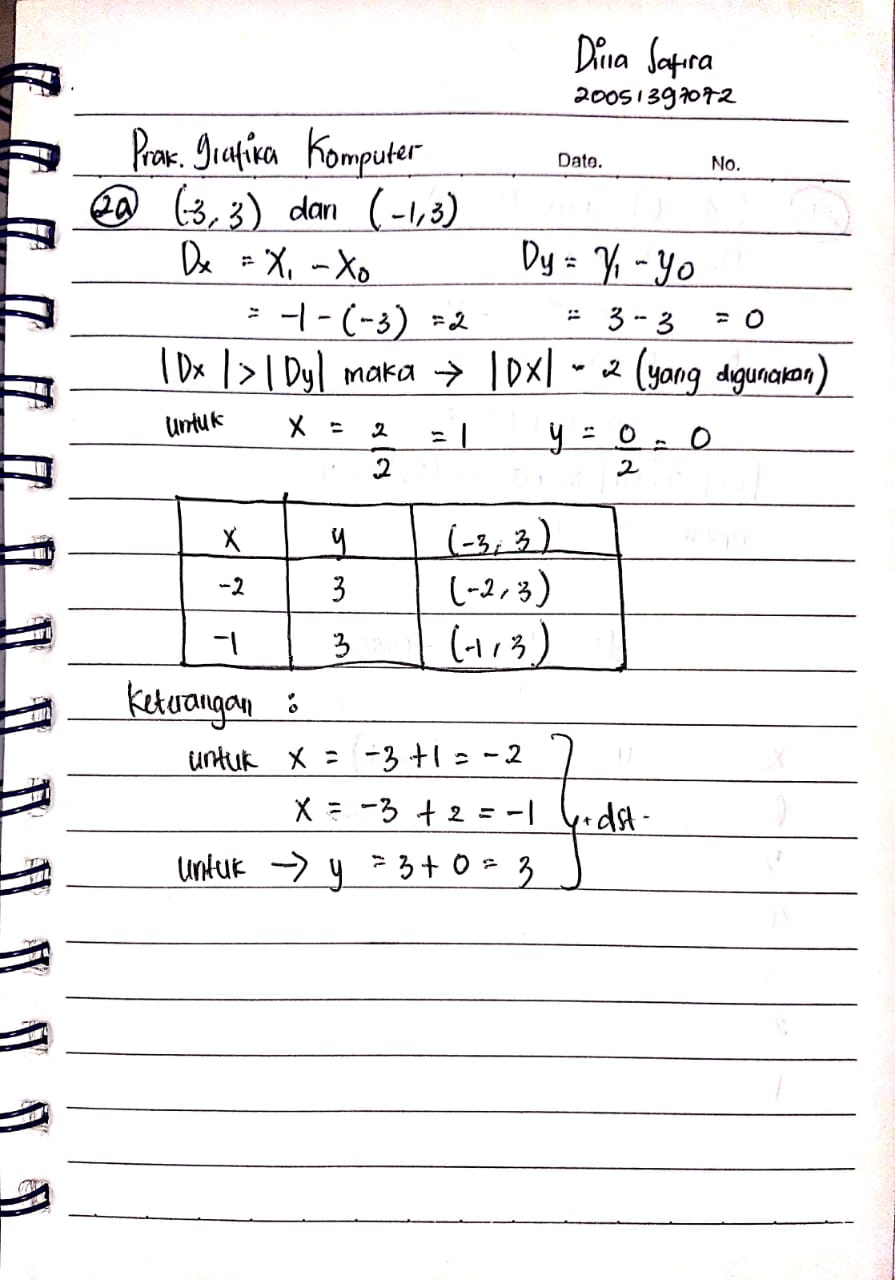 Dina Safira
20051397072
Prak. Grafika Komputer
Date. No.
2a (-3, 3) dan (-1,3)
Dx = X₁ - X₀ Dy = Y₁ - Y₀
= -1 - (-3) = 2 = 3 - 3 = 0
|Dx| > |Dy| maka → |DX| = 2 (yang digunakan)
untuk X = 2/2 = 1 y = 0/2 = 0
X y (-3, 3)
-2 3 (-2, 3)
-1 3 (-1, 3)
Keterangan :
untuk X = -3 + 1 = -2
X = -3 + 2 = -1 dst.
untuk → y = 3 + 0 = 3